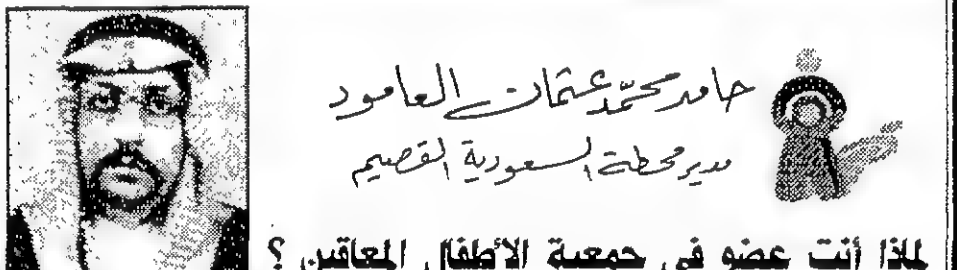 حامد محمّد عثمان العامود
مدير محطة السعودية القصيم
لماذا أنت عضو في جمعية الأطفال المعاقين ؟